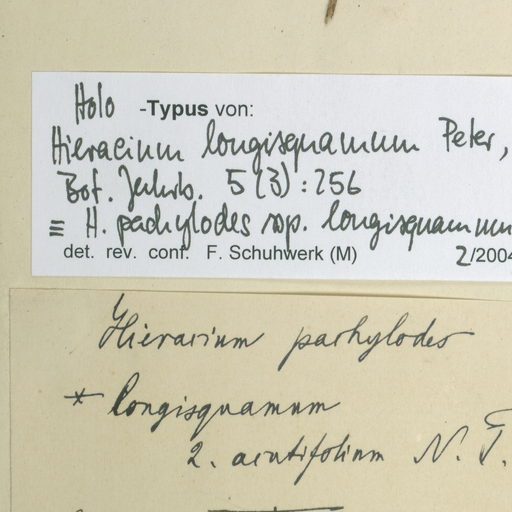 Holo -Typus von:
Hieracium longisquamum Peter,
Bot. Jahrb. 5(3):256
≡ H. pachylodes ssp. longisquamum
det. rev. conf. F. Schuhwerk (M) 2/2004
Hieracium pachylodes
* longisquamum
2. acutifolium N. P.